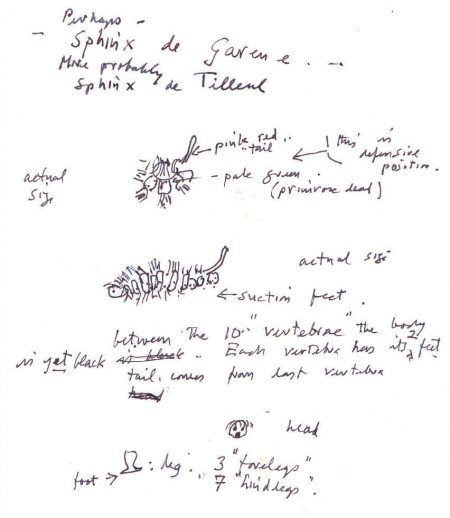 Perhaps -
- Sphinx de Garenne. -
More probably
Sphinx de Tilleul
pink red "tail"
this is defensive position.
actual size
- pale green. (primrose dead)
actual size
suction feet.
between the 10 "vertebrae" the body
is jet black is black.. Each vertebra has its 2 feet
tail comes from last vertebra
head
head
foot → Ω : leg. 3 "forelegs"
7 "hindlegs".